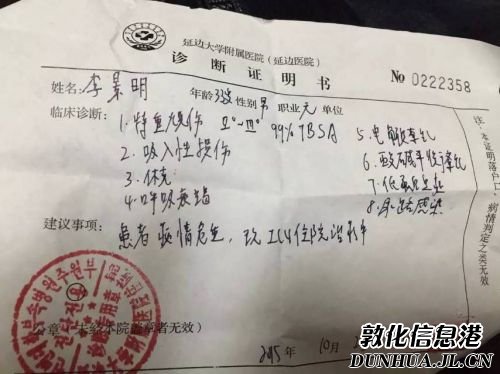 延边大学附属医院（延边医院）
诊断证明书
No 0222358
姓名：李景明 年龄 性别 男 职业 单位
临床诊断：
1. 特重烧伤 Ⅱ°~Ⅲ° 99% TBSA
2. 吸入性损伤
3. 休克
4. 呼吸衰竭
5. 电解质紊乱
6. 酸碱平衡紊乱
7. 低蛋白血症
8. 感染
建议事项：
患者病情危重，ICU住院治疗
公章（未经本院盖章者无效）
2015年 10月
注：本证明落户、病情判定之类无效
敦化信息港
DUNHUA.JL.CN